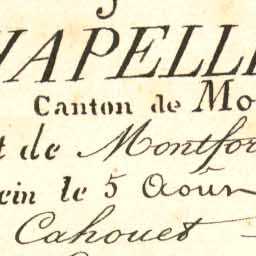 APELL
Canton de Mo
t de Montfor
cin le 5 Août
Cahouet